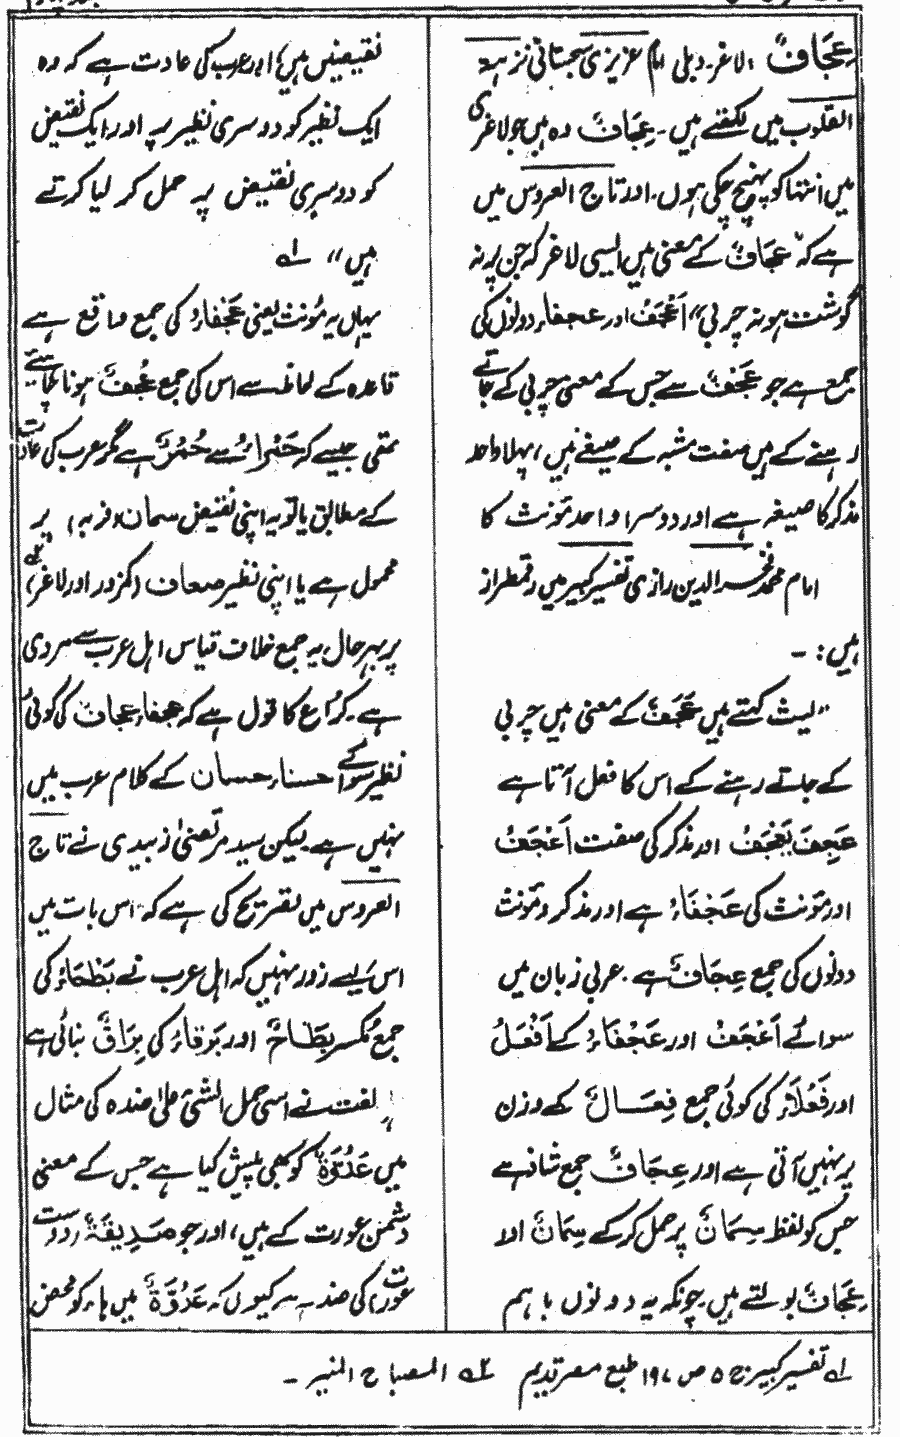 عِجَافٌ: لاغر۔ دبلی امام عزیزی سجستانی نزہۃ
القلوب میں لکھتے ہیں۔ عِجَافٌ وہ ہیں جو لاغری
میں انتہا کو پہنچ چکی ہوں۔ اور تاج العروس میں
ہے کہ "عِجَافٌ کے معنی ہیں ایسی لاغر کہ جن پر نہ
گوشت ہو نہ چربی" اَعْجَفُ اور عجفاء دونوں کی
جمع ہے جو عَجَفٌ سے جس کے معنی چربی کے جاتے
رہنے کے ہیں صفت مشبہ کے صیغے ہیں، پہلا واحد
مذکر کا صیغہ ہے اور دوسرا واحد مؤنث کا
امام محمد فخر الدین رازی تفسیر کبیر میں رقمطراز
ہیں:۔
"لیث کہتے ہیں عَجَفٌ کے معنی ہیں چربی
کے جاتے رہنے کے اس کا فعل آتا ہے
عَجِفَ یَعْجَفُ اور مذکر کی صفت اَعْجَفُ
اور مؤنث کی عَجْفَاءُ ہے اور مذکر و مؤنث
دونوں کی جمع عِجَافٌ ہے۔ عربی زبان میں
سوائے اَعْجَفُ اور عَجْفَاءُ کے اَفْعَلُ
اور فَعْلَاءُ کی کوئی جمع فِعَالٌ کے وزن
پر نہیں آتی ہے اور عِجَافٌ جمع شاذ ہے
جس کو لفظ سِمَانٌ پر حمل کر کے سِمَانٌ اور
عِجَافٌ بولتے ہیں۔ چونکہ یہ دونوں باہم
نقیضیں ہیں، اور عرب کی عادت ہے کہ وہ
ایک نظیر کو دوسری نظیر پر اور ایک نقیض
کو دوسری نقیض پر حمل کر لیا کرتے
ہیں" لہ
یہاں یہ مؤنث یعنی عَجْفَاءُ کی جمع واقع ہے
قاعدہ کے لحاظ سے اس کی جمع عُجُفٌ ہونا چاہیئے
تھی جیسے کہ حَمْرَاءُ سے حُمُرٌ ہے مگر عرب کی عادت
کے مطابق یا تو یہ اپنی نقیض سمان (فربہ) پر
محمول ہے یا اپنی نظیر ضعاف (کمزور اور لاغر)
پر بہرحال یہ جمع خلاف قیاس اہل عرب سے مروی
ہے۔ کُرَاع کا قول ہے کہ عجفاء عجاف کی کوئی
نظیر سوائے حسناء حسان کے کلام عرب میں
نہیں ہے۔ لیکن سید مرتضیٰ زبیدی نے تاج
العروس میں تصریح کی ہے کہ "اس بات میں
اس لیے زور نہیں کہ اہل عرب نے بَطْحَاءُ کی
جمع مکسر بِطَاحٌ اور بَرقَاءُ کی بِرَاقٌ بنائی ہے
لغت نے اسی حمل الشئ علیٰ ضدہ کی مثال
میں عَدُوَّةٌ کو بھی پیش کیا ہے جس کے معنی
دشمن عورت کے ہیں، اور جو صَدِیقَةٌ (دوست
عورت) کی ضد ہے کیوں کہ عَدُوَّةٌ میں ہا، کو محض
لہ تفسیر کبیر ج ۵ ص ۱۹۷ طبع مصر قدیم لہ المصباح المنیر۔